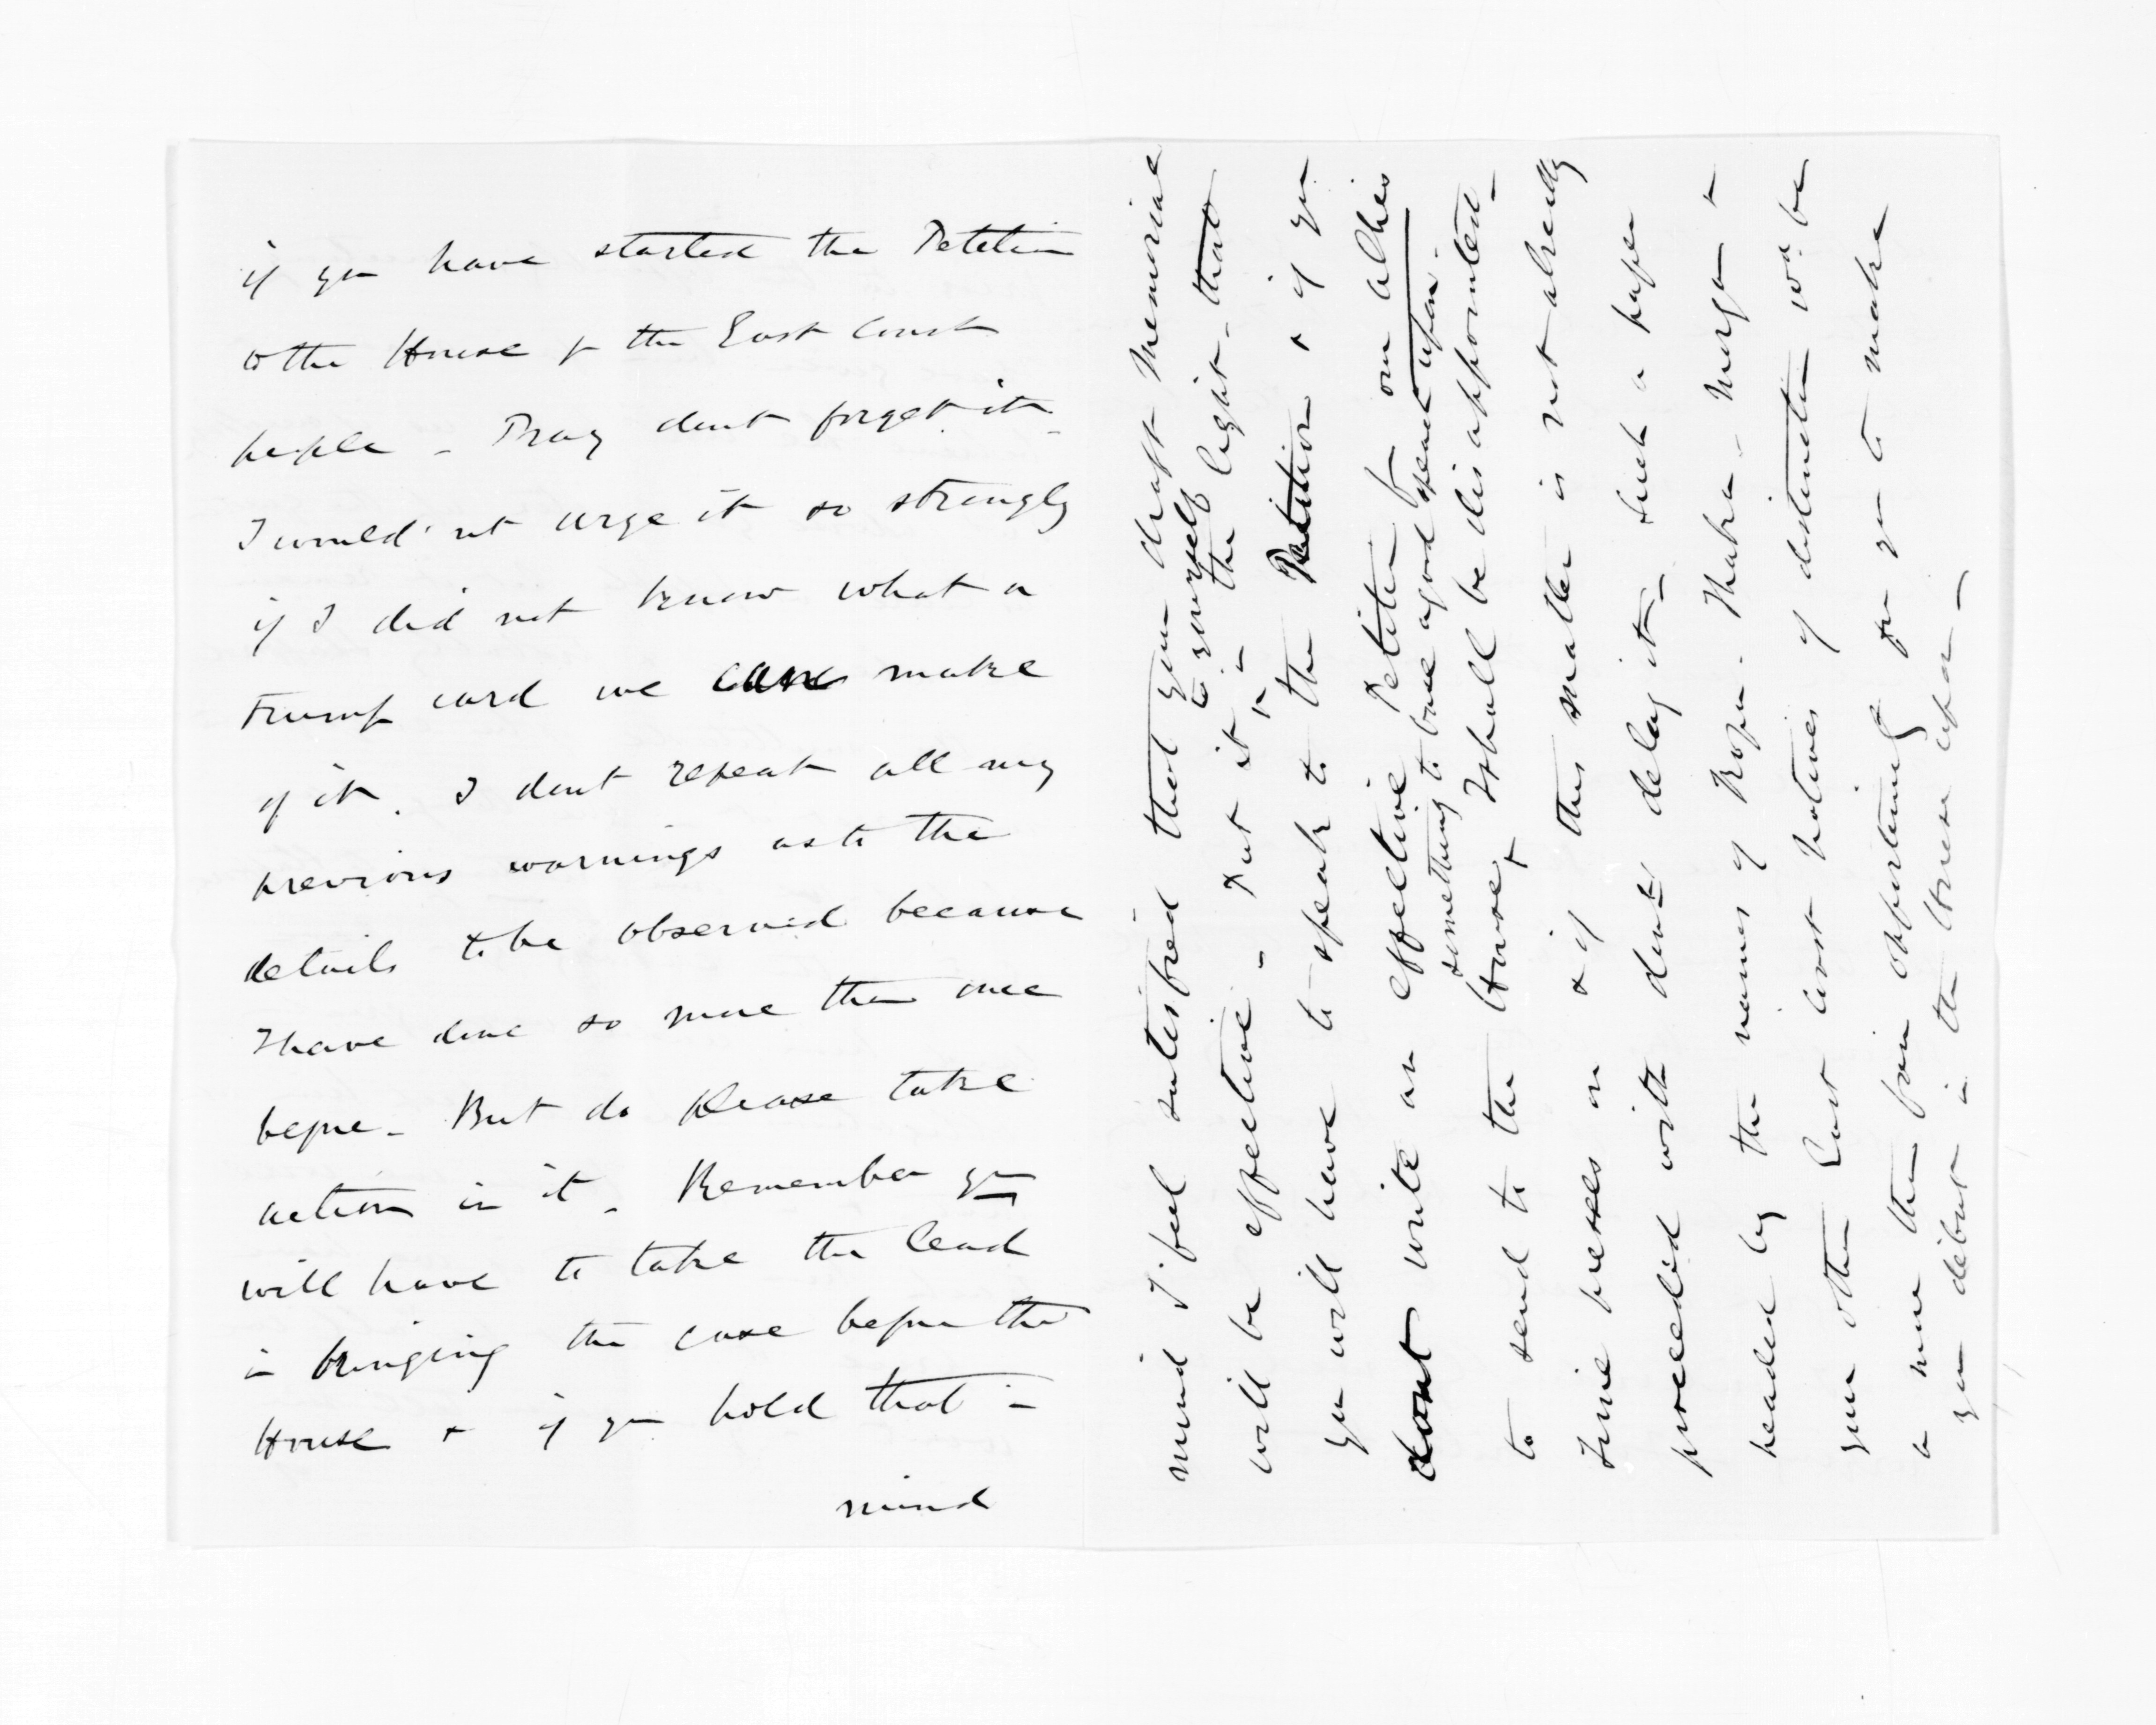 if you have started the Petition
to the House for the East Coast
people - Pray dont forget it -
I would not urge it so strongly
if I did not know what a
trump card we can make
of it. I dont repeat all my
previous warnings as to the
details to be observed because
I have done so more than once
before - But do please take
action in it - Remember you
will have to take the lead
in bringing the case before the
House & if you hold that in
mind
mind I feel satisfied that your draft Memorial
will be effective - Put it to yourself in the light - that
you will have to speak to the Petition & if you
dont write an effective Petition for our allies
to send to the House, & something to base a good speech upon. I shall be disappointed -
Time presses on & if this matter is not already
proceeded with dont delay it - Such a paper
headed by the names of Ropa. Thatra - Morgan &
your other East Coast Natives of distinction wd. be
a more than fair opportunity for you to make
your début in the House upon -